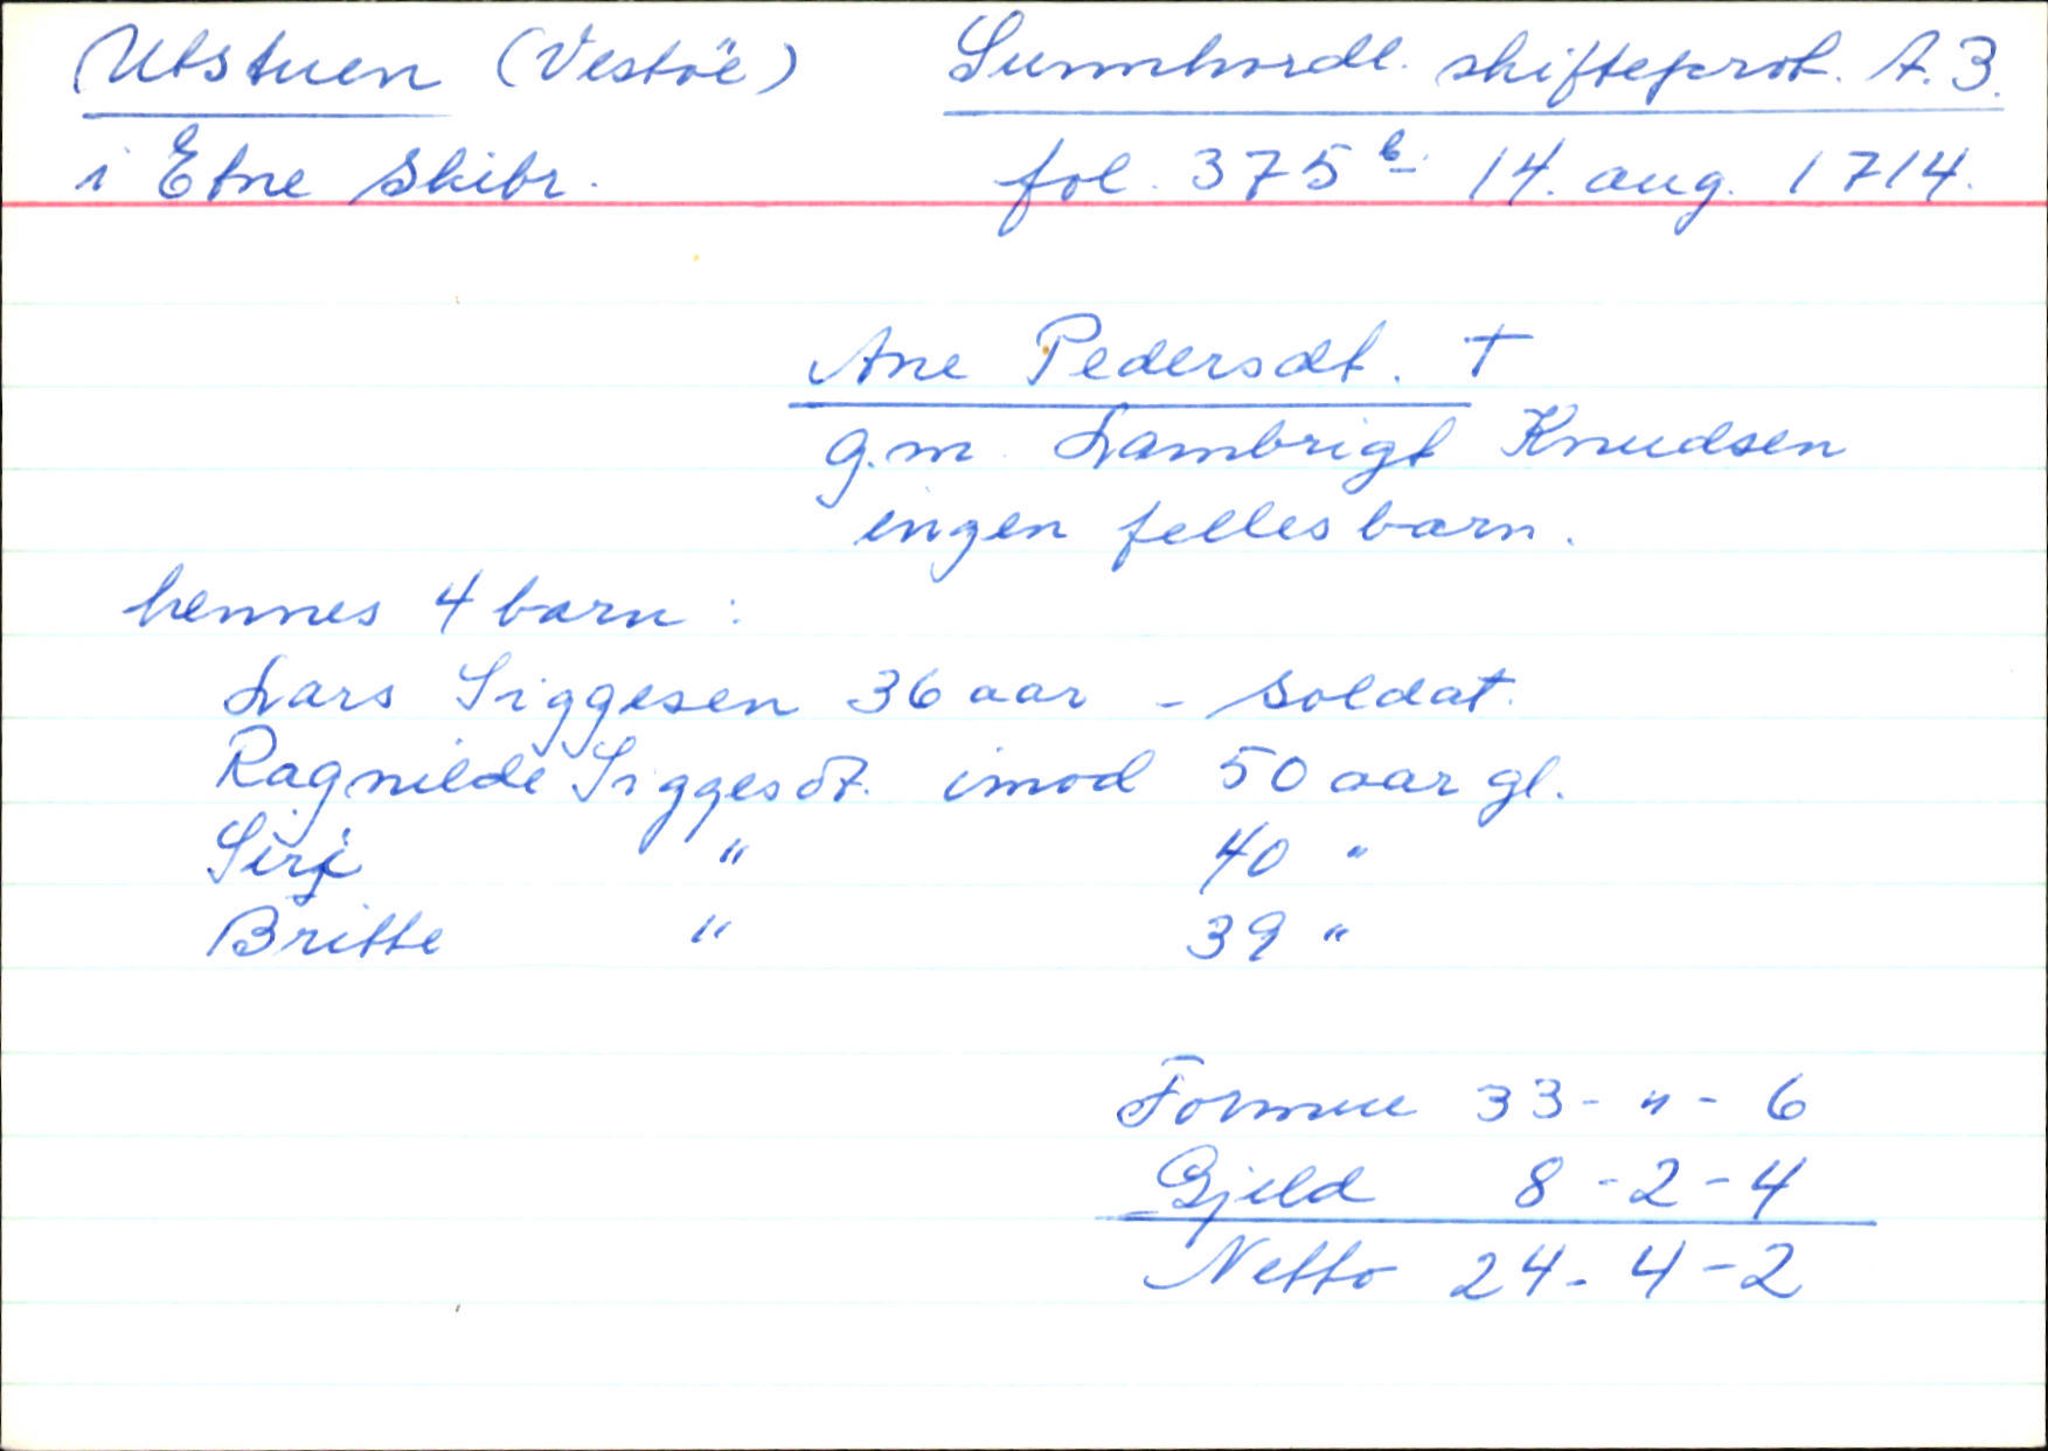 Utstuen (Vestöe) Sunnhordl. skifteprot. A.3.
i Etne Skibr. fol. 375 b 14. aug. 1714.
Ane Pedersdt. †
g.m. Lambrigt Knudsen
ingen felles barn.
hennes 4 barn:
Lars Siggesen 36 aar - soldat.
Ragnilde Siggesdt. imod 50 aar gl.
Siri " 40 "
Britte " 39 "
Formue 33 - " - 6
Gjeld 8 - 2 - 4
Netto 24 - 4 - 2